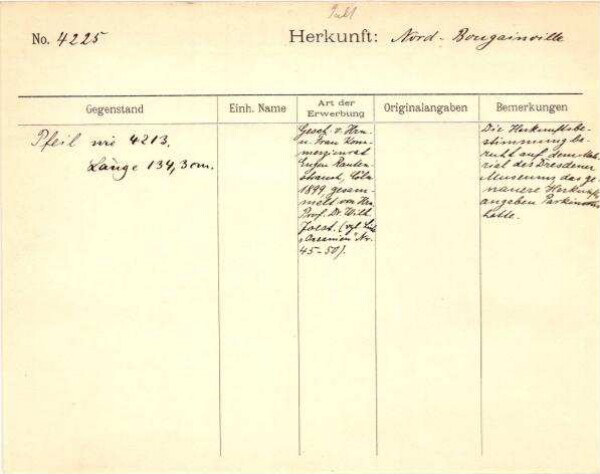 No. 4225
Herkunft: Nord-Bougainville
Gegenstand
Einh. Name
Art der Erwerbung
Originalangaben
Bemerkungen
Pfeil wie 4213.
Länge 134,3 cm.
Gesch. v. Hrn.
u. Frau Kom-
merzienrat
Eugen Rauten-
strauch, Cöln
1899 gesam-
melt von Hrn.
Prof. Dr. Wilh.
Joest. (vgl.
Oceanien Nr.
45-50).
Die Herkunftsbe-
stimmung be-
ruht auf dem Mate-
rial des Dresdener
Museums, das ge-
nauere Herkunfts-
angaben Parkinsons
hatte.